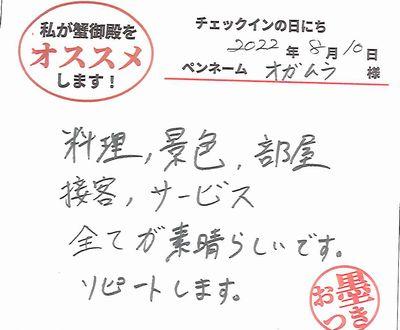 私が蟹御殿を
オススメ
します！
チェックインの日にち
2022年8月10日
ペンネーム オガムラ 様
料理，景色，部屋
接客，サービス
全てが素晴らしいです。
リピートします。
お墨つき